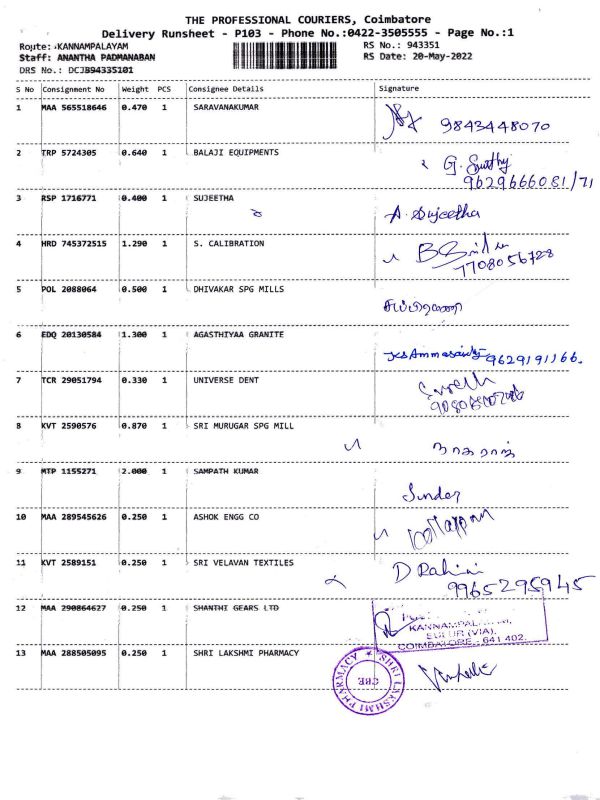 THE PROFESSIONAL COURIERS, Coimbatore
Delivery Runsheet - P103 - Phone No.:0422-3505555 - Page No.:1
Route: KANNAMPALAYAM RS No.: 943351
Staff: ANANTHA PADMANABAN RS Date: 20-May-2022
DRS No.: DCJB94335101
S No Consignment No Weight PCS Consignee Details Signature
1 MAA 565518646 0.470 1 SARAVANAKUMAR
9843448070
2 TRP 5724305 0.640 1 BALAJI EQUIPMENTS
9629666081/71
3 RSP 1716771 0.400 1 SUJEETHA
A. Sujeetha
4 HRD 745372515 1.290 1 S. CALIBRATION
7708056728
5 POL 2088064 0.500 1 DHIVAKAR SPG MILLS
6 EDQ 20130584 1.300 1 AGASTHIYAA GRANITE
9629191166.
7 TCR 29051794 0.330 1 UNIVERSE DENT
8 KVT 2590576 0.870 1 SRI MURUGAR SPG MILL
நாகராஜ்
9 MTP 1155271 2.000 1 SAMPATH KUMAR
Sunder
10 MAA 289545626 0.250 1 ASHOK ENGG CO
11 KVT 2589151 0.250 1 SRI VELAVAN TEXTILES
D Rahini
9965295945
12 MAA 290864627 0.250 1 SHANTHI GEARS LTD
KANNAMPALAYAM,
SULUR (VIA),
COIMBATORE - 641 402.
13 MAA 288505095 0.250 1 SHRI LAKSHMI PHARMACY
SHRI LAKSHMI PHARMACY
CBE